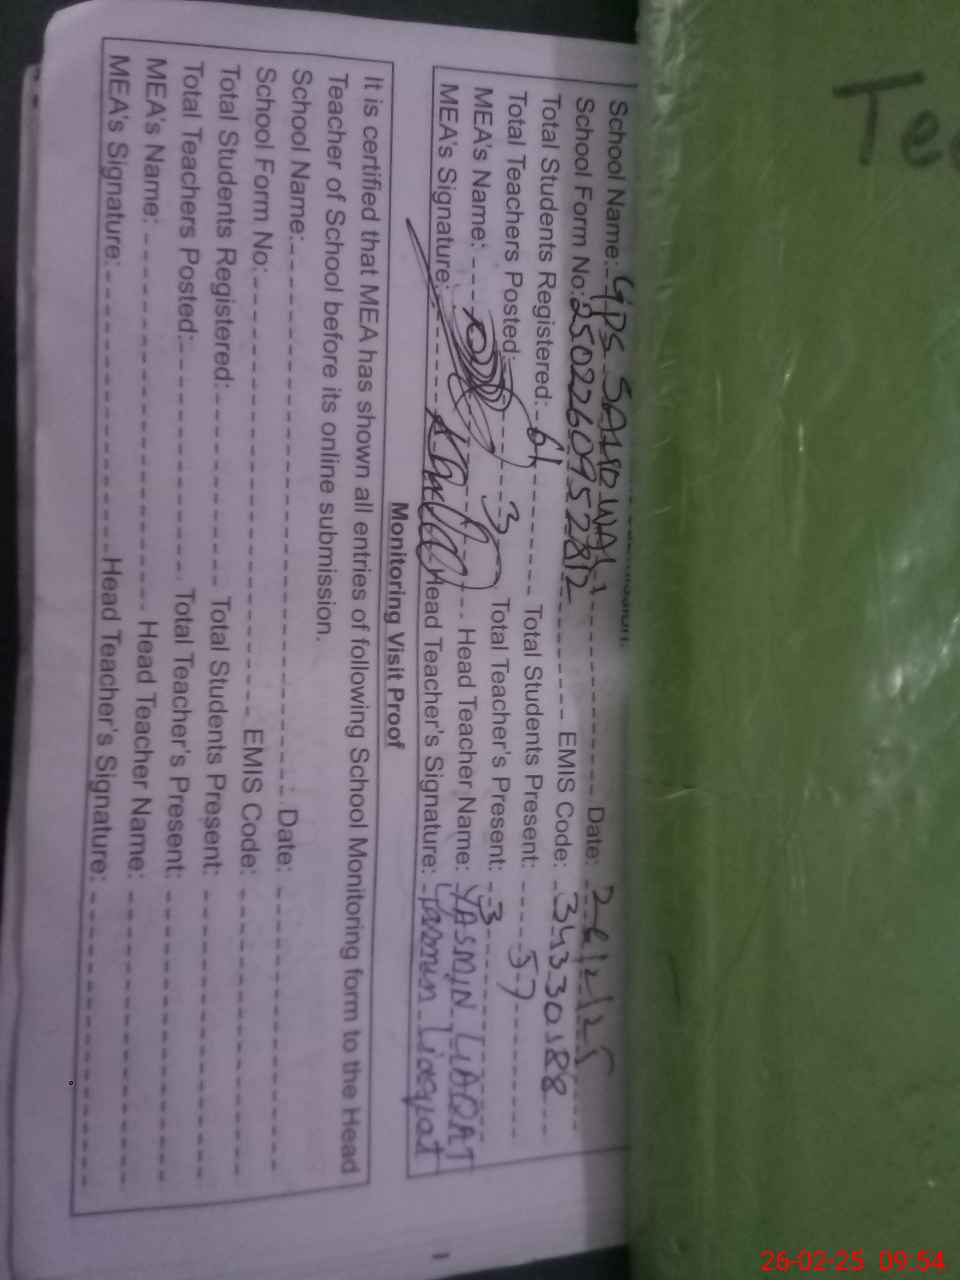 Te
School Name: GPS SAIDWALA Date: 26/2/25
School Form No: 2502260952812 EMIS Code: 34330188
Total Students Registered: 61 Total Students Present: 57
Total Teachers Posted: 3 Total Teacher's Present: 3
MEA's Name: Head Teacher Name: YASMIN LIAQAT
MEA's Signature: Head Teacher's Signature: Yasmin Liaquat
Monitoring Visit Proof
It is certified that MEA has shown all entries of following School Monitoring form to the Head
Teacher of School before its online submission.
School Name: Date:
School Form No: EMIS Code:
Total Students Registered: Total Students Present:
Total Teachers Posted: Total Teacher's Present:
MEA's Name: Head Teacher Name:
MEA's Signature: Head Teacher's Signature:
26-02-25 09:54